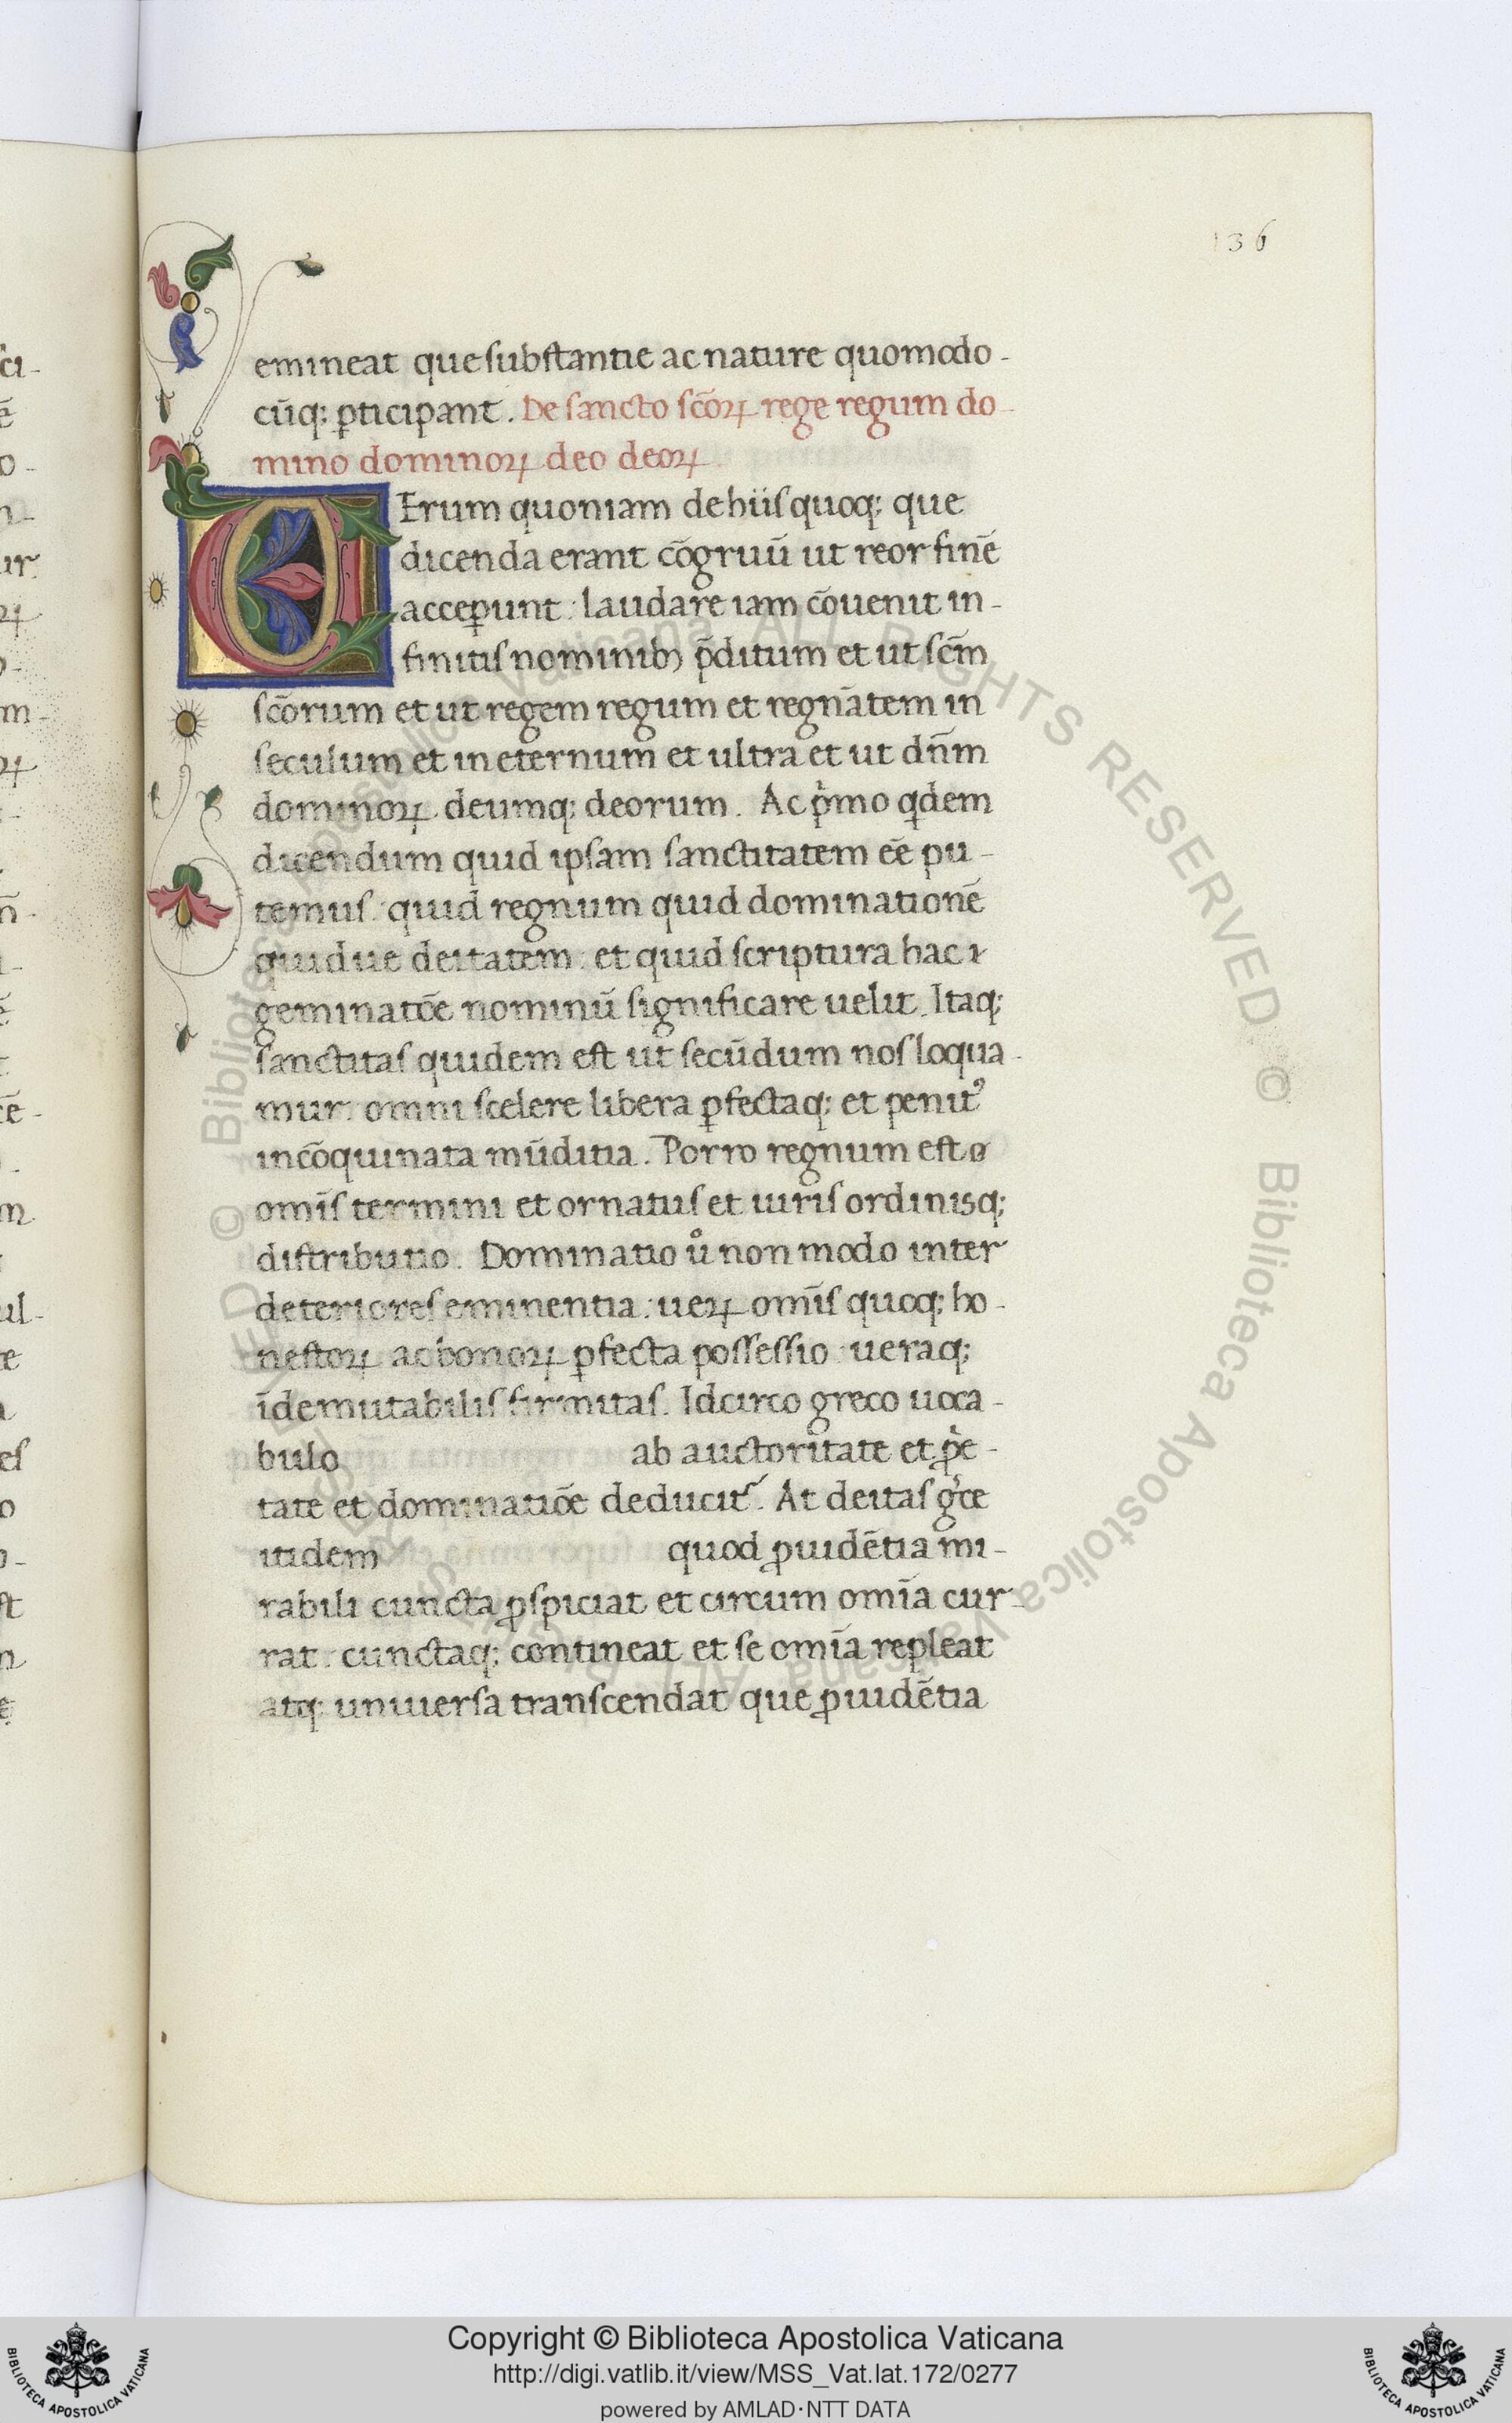 136
emineat que ſubſtantie ac nature quomodo-
cūq; ꝑticipant. De ſancto ſcōꝝ rege regum do-
mino dominoꝝ deo deoꝝ
VErum quoniam de hiiſ quoq; que
dicenda erant cōgruū ut reor finē
acceꝑunt: laudare iam cōuenit in-
finitiſ nominibꝫ p̄ditum et ut ſcm̄
ſcōrum et ut regem regum et regnātem in
ſeculum et in eternum et ultra et ut dn̄m
dominoꝝ deumq; deorum. Ac pͥmo qͥdem
dicendum quid ipſam ſanctitatem eē pu-
temuſ: quid regnum quid dominationē
quidue deitatem: et quid ſcriptura hac ı
geminatōe nominū ſignificare uelit. Itaq;
ſanctitaſ quidem eſt ut ſecūdum noſ loqua-
mur: omni ſcelere libera ꝑfectaq; et penitꝰ
incōquinata mūditia. Porro regnum eſt
omīſ termini et ornatuſ et iuriſ ordinisq;
diſtributio. Dominatio uͦ non modo inter
deterioreſ eminentia: ueꝝ omīſ quoq; ho-
neſtoꝝ ac bonoꝝ ꝑfecta poſſeſſio: ueraq;
īdemutabiliſ firmitaſ. Idcirco greco uoca-
bulo ab auctoritate et pͥe-
tate et dominatiōe deducit᷑. At deitaſ gͥce
itidem quod ꝓuidētia mi-
rabili cuncta ꝓſpiciat et circum omīa cur-
rat: cunctaq; contineat et ſe omīa repleat
atq; uniuerſa tranſcendat que ꝓuidētia
ALL RIGHTS RESERVED © Biblioteca Apostolica Vaticana
© Biblioteca Apostolica Vaticana
BIBLIOTECA APOSTOLICA VATICANA
Copyright © Biblioteca Apostolica Vaticana
http://digi.vatlib.it/view/MSS_Vat.lat.172/0277
powered by AMLAD·NTT DATA
BIBLIOTECA APOSTOLICA VATICANA